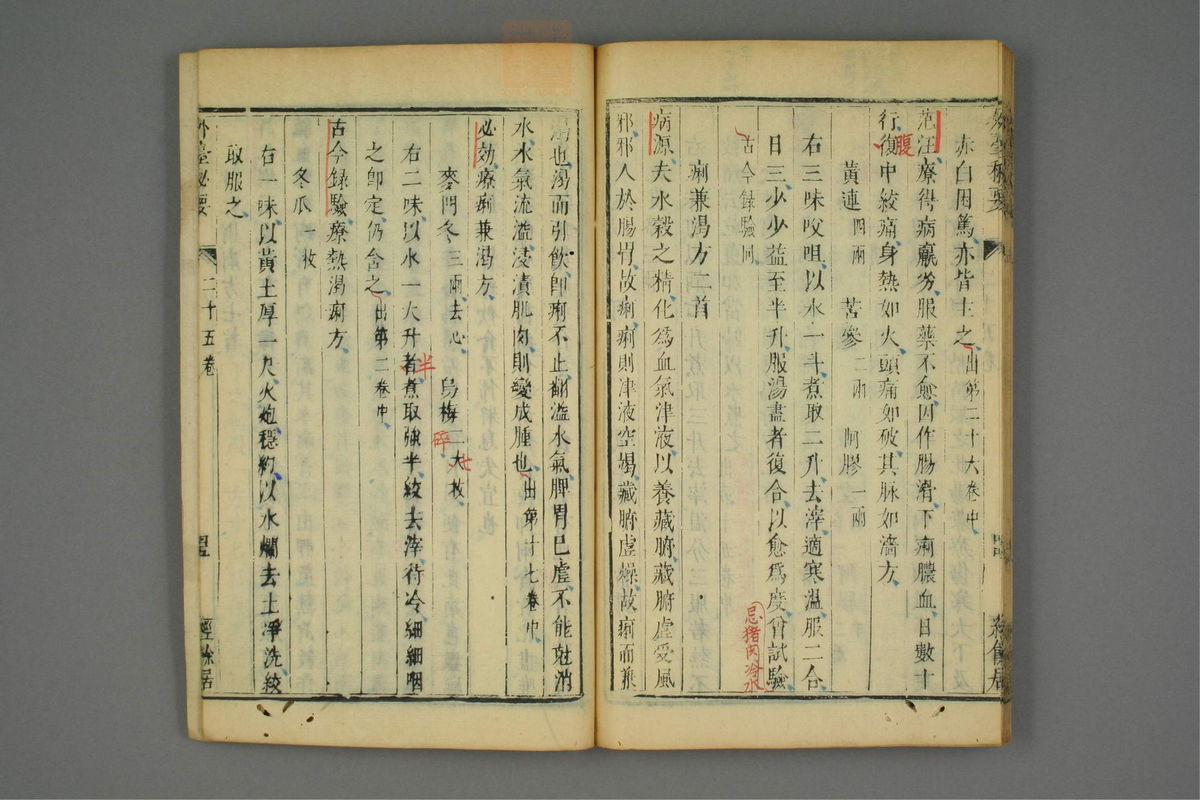 赤白困篤亦皆主之出第二十六卷中
范汪療得病羸劣服藥不愈因作腸滑下痢膿血日數十
行復中絞痛身熱如火頭痛如破其脉如濇方
腹
黃連四兩 苦參二兩 阿膠一兩
右三味㕮咀以水一斗煮取二升去滓適寒温服二合
日三少少益至半升服湯盡者復合以愈爲度曾試驗
忌猪肉冷水
古今録驗同
痢兼渴方二首
病源夫水穀之精化爲血氣津液以養藏腑藏腑虛受風
邪邪人於腸胃故痢痢則津液空竭藏腑虛燥故痢而兼
渴也渴而引飲卽痢不止翻溢水氣脾胃巳虛不能尅消
水水氣流溢浸漬肌肉則變成腫也出第十七卷中
必効療痢兼渴方
麥門冬三兩去心 烏梅二大枚
七
碎
右二味以水一大升者煮取強半絞去滓待冷細細咽
半
之卽定仍含之出第二卷中
古今録驗療熱渴痢方
冬瓜一枚
右一味以黃土厚一尺火炮穩約以水爛去土淨洗絞
取服之
外臺祕要 二十五卷 經餘居